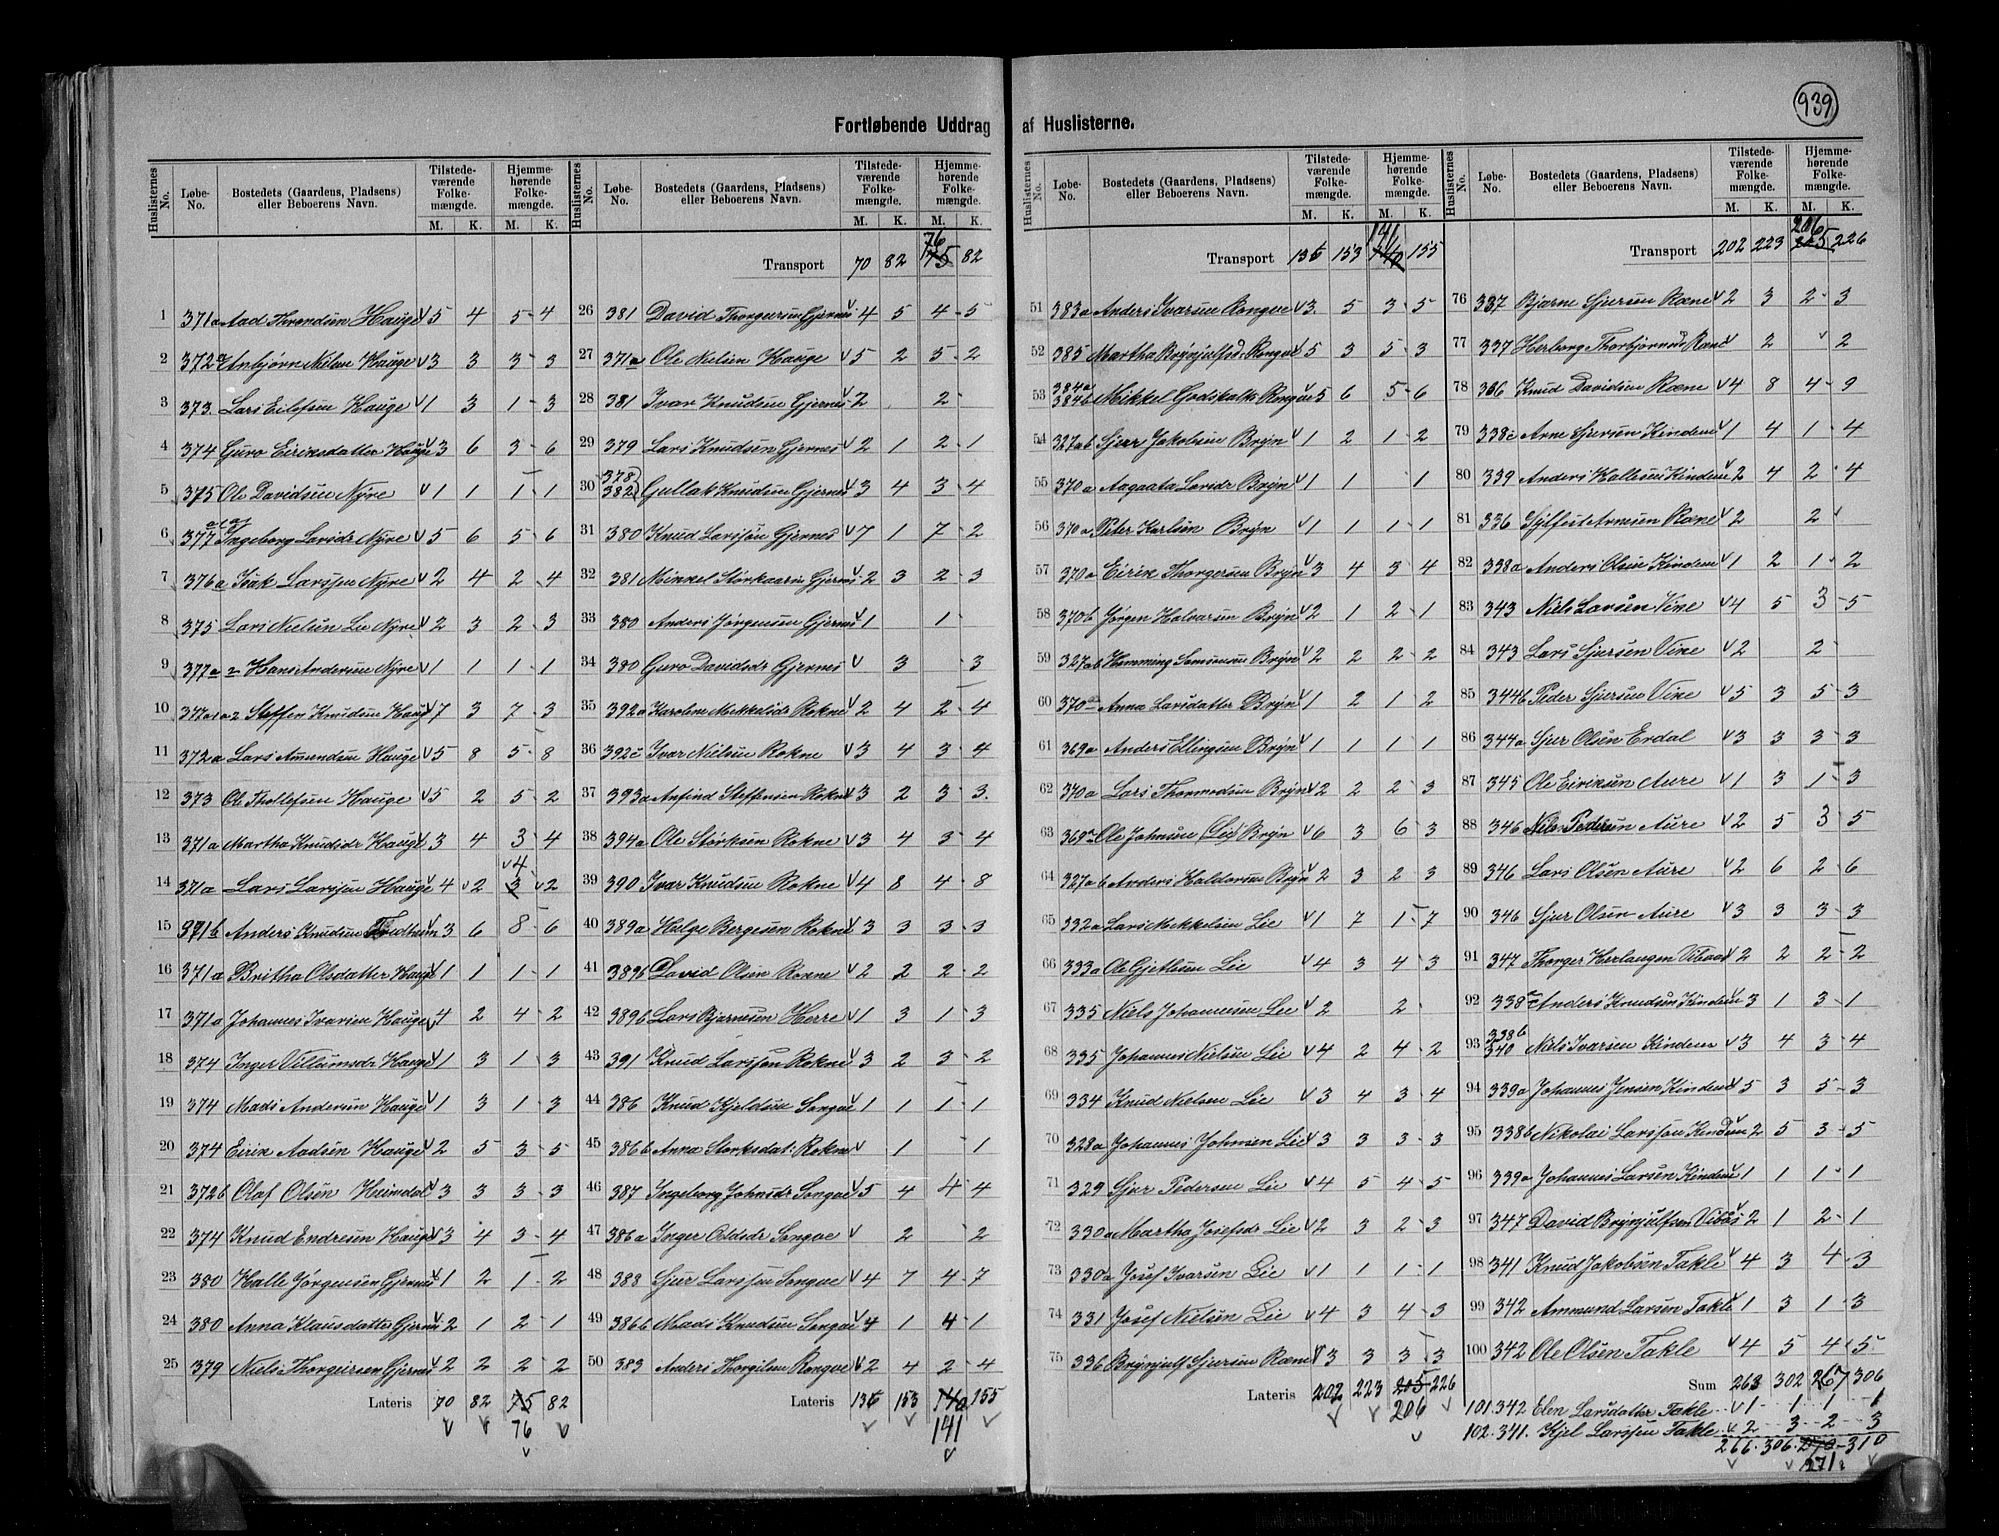 939
Fortløbende Uddrag af Huslisterne.
Huslisternes No. Løbe-No. Bostedets (Gaardens, Pladsens) eller Beboerens Navn. Tilstedeværende Folkemængde. M. K. Hjemmehørende Folkemængde. M. K.
1 371a Aad Throndsen Hauge v 5 4 5 - 4
2 372a Anbjørn Nilsen Hauge v 3 3 3 - 3
3 373. Lars Eilefsen Hauge v 1 3 1 - 3
4 374 Guro Eiriksdatter Hauge v 3 6 3 - 6
5 375 Ole Davidsen Nyre v 1 1 1 - 1
6 377 Ingeborg Larsdr Nyre v 5 6 5 - 6
7 376a Isak Larssen Nyre v 2 4 2 - 4
8 375 Lars Nielsen Nyre v 2 3 2 - 3
9 377a2 Hans Andersen Nyre v 1 1 1 - 1
10 377a1a2 Steffen Knudsen Hauge v 7 3 7 - 3
11 372a Lars Amundsen Hauge v 5 8 5 - 8
12 373 Ole Thollefsen Hauge v 5 2 5 - 2
13 371a Martha Knudsdr Hauge v 3 4 3 - 4
14 371a Lars Larssen Hauge v 4 v 2 3 v4 v 2
15 371b Anders Knudsen v 3 6 8 - 6
16 371a Britha Olsdatter Hauge v 1 1 1 - 1
17 371a Johannes Ivarsen Hauge v 4 2 4 - 2
18 374 Inger Villumsdr Hauge v 1 3 1 - 3
19 374 Mads Andersen Hauge v 1 3 1 - 3
20 374 Eirik Aadsen Hauge v 2 5 3 - 5
21 372b Olaf Olsen Heimdal v 3 3 3 - 3
22 374 Knud Endresen Hauge v 3 4 3 - 4
23 380 Halle Jørgensen Gjernes v 1 2 1 - 2
24 380 Anna Klausdatter Gjernes v 2 1 2 - 1
25 379 Niels Thorgeirsen Gjernes v 2 2 2 - 2
Lateris 70 82 75 82
76
Huslisternes No. Løbe-No. Bostedets (Gaardens, Pladsens) eller Beboerens Navn. Tilstedeværende Folkemængde. M. K. Hjemmehørende Folkemængde. M. K.
Transport 70 82 75 76 82
26 381 David Thorgeirsen Gjernes v 4 5 4 - 5
27 371a Ole Nielsen Hauge v 5 2 5 - 2
28 381 Ivar Knudsen Gjernes v 2 2 -
29 379 Lars Knudsen Gjernes v 2 1 2 - 1
30 378 382 Gullak Knudsen Gjernes v 3 4 3 - 4
31 380 Knud Larssen Gjernes v 7 1 7 - 2
32 381 Mikkel Gjernes v 2 3 2 - 3
33 380 Anders Jørgensen Gjernes v 1 1 -
34 380 Guro Davidsdr Gjernes v 3 - 3
35 392a Karoline Mikkelsdr Rokne v 2 4 2 - 4
36 392c Ivar Nielsen Rokne v 3 4 3 - 4
37 393a Anfind Steffensen Rokne v 3 2 3 - 3.
38 394a Ole Størksen Rokne v 3 4 3 - 4
39 390 Ivar Knudsen Rokne v 4 8 4 - 8
40 389a Helge Bergesen Rokne v 3 3 3 - 3
41 389b David Olsen Rokne v 2 2 2 - 2
42 389b Lars Bjørnesen Herre v 1 3 1 - 3
43 391 Knud Larssen Rokne v 3 2 3 - 2
44 386 Knud Kjeldsen Songve v 1 1 1 - 1
45 386b Anna Storksdat: Rokne v 1 - 1
46 387 Ingeborg Johnsdr Songve v 5 4 4 - 4
47 386a Inger Oddsdr Songve v 2 - 2
48 388 Sjur Larssen Songve v 4 7 4 - 7
49 386b Mads Knudsen Songve v 4 1 4 - 1
50 383 Anders Thorgilsen Rongve v 2 4 2 - 4
Lateris 136 153 140 155
141
Huslisternes No. Løbe-No. Bostedets (Gaardens, Pladsens) eller Beboerens Navn. Tilstedeværende Folkemængde. M. K. Hjemmehørende Folkemængde. M. K.
Transport 136 153 140 141 155
51 383a Anders Ivarsen Rongve v 3. 5 3 - 5
52 385 Martha Brynjulfsd. Rongve v 5 3 5 - 3
53 384a 384b Mikkel Godskalks. Rongve v 5 6 5 - 6
54 327ab Sjur Jakobsen Bryn v 1 2 1 - 2
55 370a Aagaata Larsdr Bryn v 1 1 1
56 370a Peter Karlsen Bryn v 1 1 1 - 1
57 370a Eirik Thorgersen Bryn v 3 4 3 4
58 370b Jørgen Halvarsen Bryn v 2 1 2 - 1
59 327ab Hemming Samsonsen Bryn v 2 2 2 - 2
60 370 Anna Larsdatter Bryn v 1 2 1 - 2
61 369a Anders Ellingsen Bryn v 1 1 1 - 1
62 370a Lars Thormodsen Bryn v 2 2 2 - 3
63 369a Ole Johnsen (Lie) Bryn v 6 3 6 - 3
64 327ab Anders Haldorsen Bryn v 2 3 2 - 3
65 332a Lars Mikkelsen Lie v 1 7 1 - 7
66 333a Ole Gjetlesen Lie v 4 3 4 - 3
67 335 Niels Johannesen Lie v 2 2 -
68 335 Johannes Nielsen Lie v 4 2 4 - 2
69 334 Knud Nielsen Lie v 3 4 3 - 4
70 328a Johannes Johnsen Lie v 3 3 3 - 3
71 329 Sjur Pedersen Lie v 4 5 4 - 5
72 330a Martha Josefsdr Lie v 2 3 2 - 3
73 330a Josef Ivarsen Lie v 1 1 1 - 1
74 331 Josef Nielsen Lie v 4 3 4 - 3
75 336 Brynjulf Sjursen Ræne v 3 3 3 - 3
Lateris 202 223 205 226
206
Huslisternes No. Løbe-No. Bostedets (Gaardens, Pladsens) eller Beboerens Navn. Tilstedeværende Folkemængde. M. K. Hjemmehørende Folkemængde. M. K.
Transport 202 223 205 206 226
76 337 Bjarne Sjursen Ræne v 2 3 2 - 3
77 337 Herborg Thorbjørnsd Ræne v 2 v 2
78 336 Knud Davidsen Ræne v 4 8 4 - 9
79 338c Arne Sjursen Kindem v 1 4 1 - 4
80 339 Anders Hallesen Kindem v 2 4 2 - 4
81 336 Sylfest Arnesen Ræne v 2 2 v
82 338a Anders Olsen Kindem v 1 2 1 - 2
83 343 Niels Larsen Vine v 4 5 3 - 5
84 343 Lars Sjursen Vine v 2 2 -
85 344b Peder Sjursen Vine v 5 3 5 - 3
86 344a Sjur Olsen Erdal v 3 3 3 - 3
87 345 Ole Eiriksen Aure v 1 3 1 - 3
88 346 Nils Pedersen Aure v 2 5 3 - 5
89 346 Lars Olsen Aure v 2 6 2 - 6
90 346 Sjur Olsen Aure v 3 3 3 - 3
91 347 Thorger Herlaugsen v 2 2 2 - 2
92 338c Anders Knudsen Kindem v 3 1 3 - 1
93 338b 340 Niels Ivarsen Kindem v 3 4 3 - 4
94 339a Johannes Jensen Kindem v 5 3 5 - 3
95 338b Nikolai Larssen Kindem v 2 5 3 - 5
96 339a Johannes Larsen Kindem v 1 1 1 - 1
97 347 David Brynjulfsen v 2 1 2 - 1
98 341 Knud Jakobsen Takle v 4 3 4 - 3
99 342 Ammund Larsen Takle v 1 3 1 - 3
100 342 Ole Olsen Takle v 4 5 4 - 5.
Sum 263 302 267 306
101. 342 Elen Larsdatter Takle v 1 1 1 1
102. 341. Kjel Larssen Takle v 2 3 2 3
266. 306. 270 - 310
271